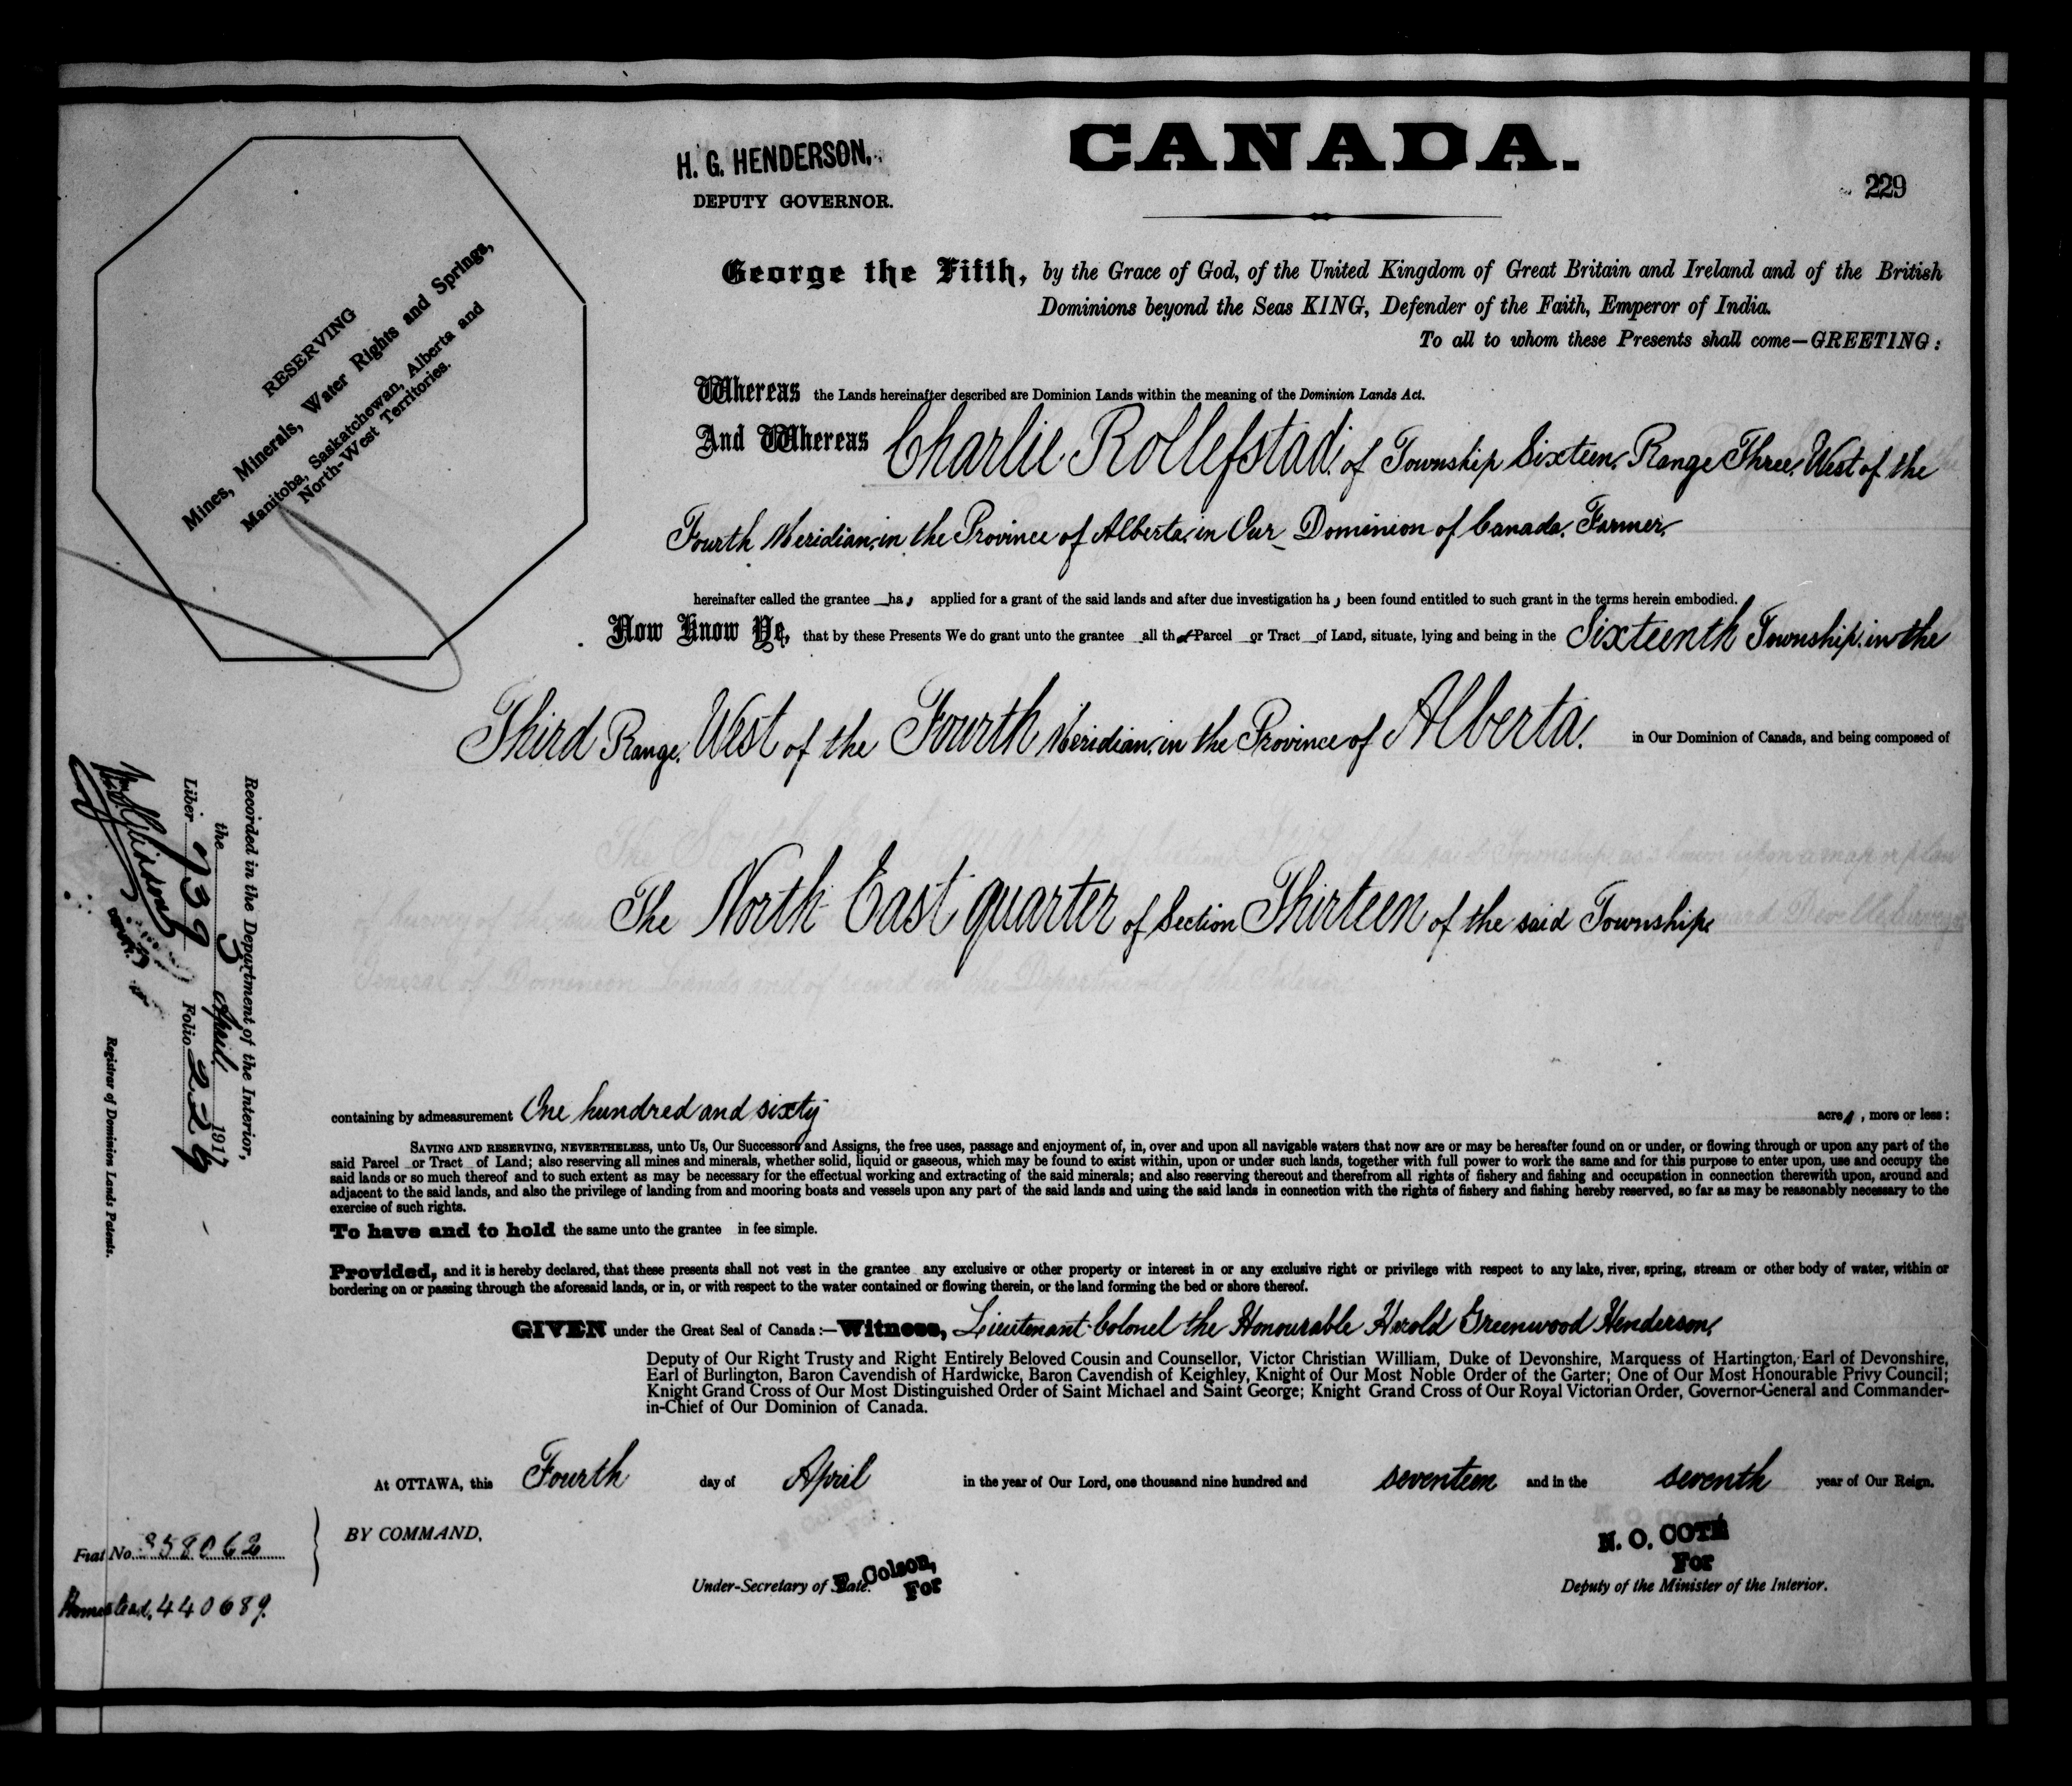 CANADA.
H. G. HENDERSON,
DEPUTY GOVERNOR.
229
RESERVING
Mines, Minerals, Water Rights and Springs,
Manitoba, Saskatchewan, Alberta and
North-West Territories.
George the Fifth, by the Grace of God, of the United Kingdom of Great Britain and Ireland and of the British
Dominions beyond the Seas KING, Defender of the Faith, Emperor of India.
To all to whom these Presents shall come—GREETING:
Whereas the Lands hereinafter described are Dominion Lands within the meaning of the Dominion Lands Act.
And Whereas Charlie Rollefstad, of Township Sixteen, Range Three, West of the
Fourth Meridian, in the Province of Alberta, in Our Dominion of Canada, Farmer,
hereinafter called the grantee has applied for a grant of the said lands and after due investigation has been found entitled to such grant in the terms herein embodied.
Now Know Ye, that by these Presents We do grant unto the grantee all that Parcel or Tract of Land, situate, lying and being in the Sixteenth Township, in the
Third Range, West of the Fourth Meridian, in the Province of Alberta, in Our Dominion of Canada, and being composed of
The North East quarter of Section Thirteen of the said Township,
containing by admeasurement One hundred and sixty acres, more or less:
SAVING AND RESERVING, NEVERTHELESS, unto Us, Our Successors and Assigns, the free uses, passage and enjoyment of, in, over and upon all navigable waters that now are or may be hereafter found on or under, or flowing through or upon any part of the
said Parcel or Tract of Land; also reserving all mines and minerals, whether solid, liquid or gaseous, which may be found to exist within, upon or under such lands, together with full power to work the same and for this purpose to enter upon, use and occupy the
said lands or so much thereof and to such extent as may be necessary for the effectual working and extracting of the said minerals; and also reserving thereout and therefrom all rights of fishery and fishing and occupation in connection therewith upon, around and
adjacent to the said lands, and also the privilege of landing from and mooring boats and vessels upon any part of the said lands and using the said lands in connection with the rights of fishery and fishing hereby reserved, so far as may be reasonably necessary to the
exercise of such rights.
To have and to hold the same unto the grantee in fee simple.
Provided, and it is hereby declared, that these presents shall not vest in the grantee any exclusive or other property or interest in or any exclusive right or privilege with respect to any lake, river, spring, stream or other body of water, within or
bordering on or passing through the aforesaid lands, or in, or with respect to the water contained or flowing therein, or the land forming the bed or shore thereof.
GIVEN under the Great Seal of Canada:—Witness, Lieutenant-Colonel the Honourable Harold Greenwood Henderson,
Deputy of Our Right Trusty and Right Entirely Beloved Cousin and Counsellor, Victor Christian William, Duke of Devonshire, Marquess of Hartington, Earl of Devonshire,
Earl of Burlington, Baron Cavendish of Hardwicke, Baron Cavendish of Keighley, Knight of Our Most Noble Order of the Garter; One of Our Most Honourable Privy Council;
Knight Grand Cross of Our Most Distinguished Order of Saint Michael and Saint George; Knight Grand Cross of Our Royal Victorian Order, Governor-General and Commander-
in-Chief of Our Dominion of Canada.
At OTTAWA, this Fourth day of April in the year of Our Lord, one thousand nine hundred and seventeen and in the seventh year of Our Reign.
BY COMMAND,
F. Colson,
For
Under-Secretary of State.
N. O. COTÉ
For
Deputy of the Minister of the Interior.
Fiat No. 358062
Homestead, 440689.
Recorded in the Department of the Interior,
the 5 April 1917
Liber 739 Folio 226
Registrar of Dominion Lands Patents.